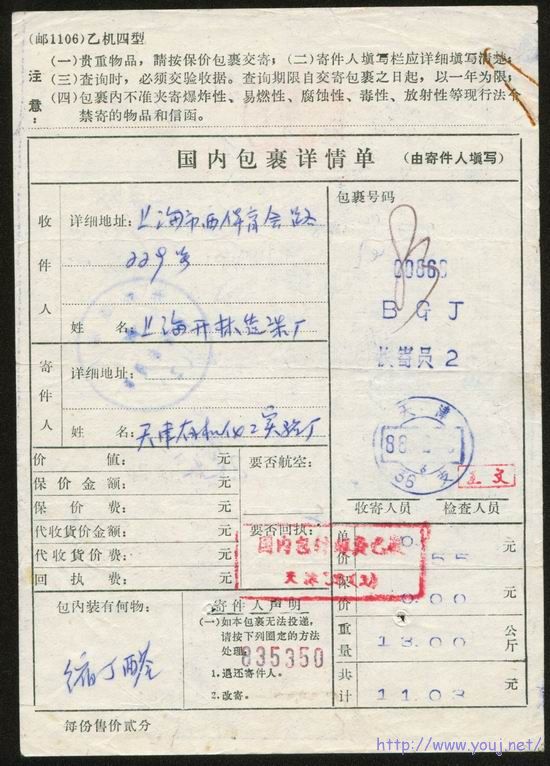 (邮1106)乙机四型
注意：
(一)贵重物品，請按保价包裹交寄；(二)寄件人填写栏应详细填写清楚；
(三)查询时，必须交验收据。查询期限自交寄包裹之日起，以一年为限；
(四)包裹内不准夹寄爆炸性、易燃性、腐蚀性、毒性、放射性等现行法令
禁寄的物品和信函。
国内包裹详情单 (由寄件人填写)
收件人
详细地址：上海市西体育会路
229号
姓 名：上海开林造漆厂
包裹号码
00660
BGJ
长寄员 2
寄件人
详细地址：
姓 名：天津有机化工实验厂
天津
88
36
价 值： 元
保价金额： 元
保 价 费： 元
代收貨价金额： 元
代收貨价费： 元
回 执 费： 元
要否航空：
要否回执：
国内包
天津
收寄人员 检查人员
单价 元
保价 0.00 元
重量 13.00 公斤
共计 11.03 元
包内装有何物：
缩丁醛
寄件人声明
(一)如本包裹无法投递，
请按下列圈定的方法
处理：
835350
1.退还寄件人。
2.改寄。
每份售价贰分
http://www.youj.net/